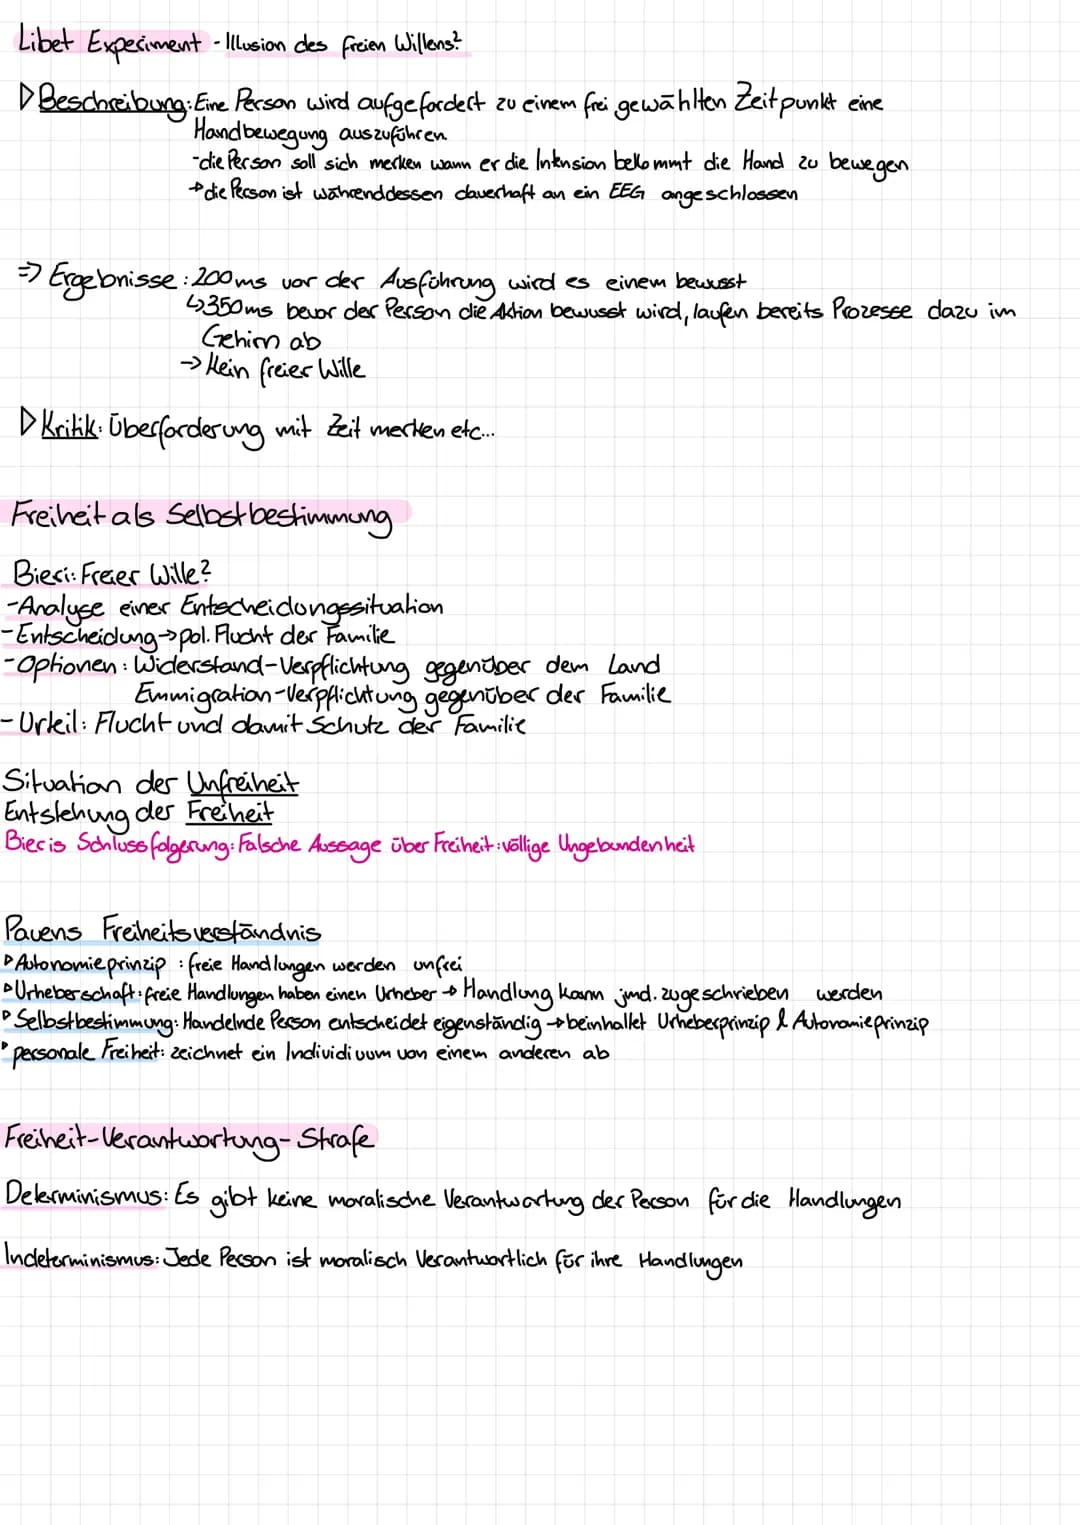 Libet Experiment - Illusion des freien Willens?
▷ Beschreibung: Eine Person wird aufgefordert zu einem frei gewählten Zeitpunkt eine
Handbewegung auszuführen.
- die Person soll sich merken wann er die Intension bekommt die Hand zu bewegen
→ die Person ist währenddessen dauerhaft an ein EEG angeschlossen
=> Ergebnisse: 200ms vor der Ausführung wird es einem bewusst
↳ 350ms bevor der Person die Aktion bewusst wird, laufen bereits Prozesse dazu im
Gehirn ab
→ Kein freier Wille
▷ Kritik: Überforderung mit Zeit merken etc...
Freiheit als Selbstbestimmung
Bieri: Freier Wille?
- Analyse einer Entscheidungssituation
- Entscheidung → pol. Flucht der Familie
- Optionen: Widerstand - Verpflichtung gegenüber dem Land
Emmigration - Verpflichtung gegenüber der Familie
- Urteil: Flucht und damit Schutz der Familie
Situation der Unfreiheit
Entstehung der Freiheit
Bieris Schlussfolgerung: Falsche Aussage über Freiheit: völlige Ungebundenheit
Pauens Freiheitsverständnis
▷ Autonomieprinzip: freie Handlungen werden unfrei
▷ Urheberschaft: freie Handlungen haben einen Urheber → Handlung kann jmd. zugeschrieben werden
▷ Selbstbestimmung: Handelnde Person entscheidet eigenständig → beinhaltet Urheberprinzip & Autonomieprinzip
▷ personale Freiheit: zeichnet ein Individiuum von einem anderen ab
Freiheit - Verantwortung - Strafe
Determinismus: Es gibt keine moralische Verantwortung der Person für die Handlungen
Indeterminismus: Jede Person ist moralisch Verantwortlich für ihre Handlungen